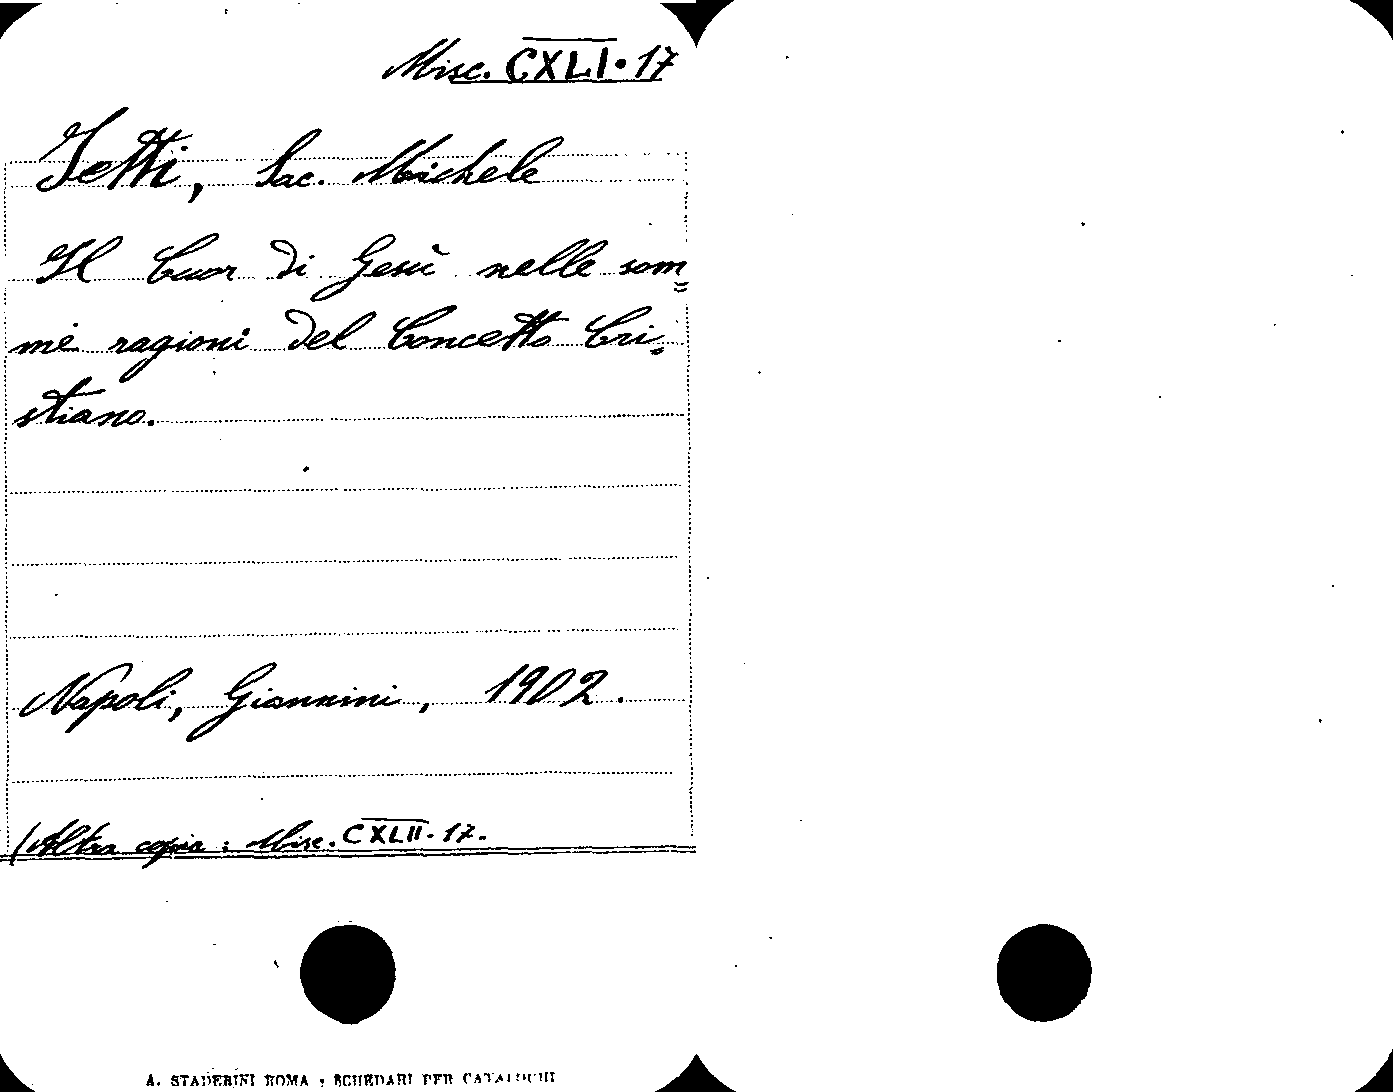 Misc. CXLI. 17
Jetti, Sac. Michele
Il Cuor di Gesù nelle som=
me ragioni del Concetto Cri=
stiano.
Napoli, Giannini, 1902.
(Altra copia: Misc. CXLII. 17.
A. STADERINI ROMA : SCHEDARI PER CATALOGHI